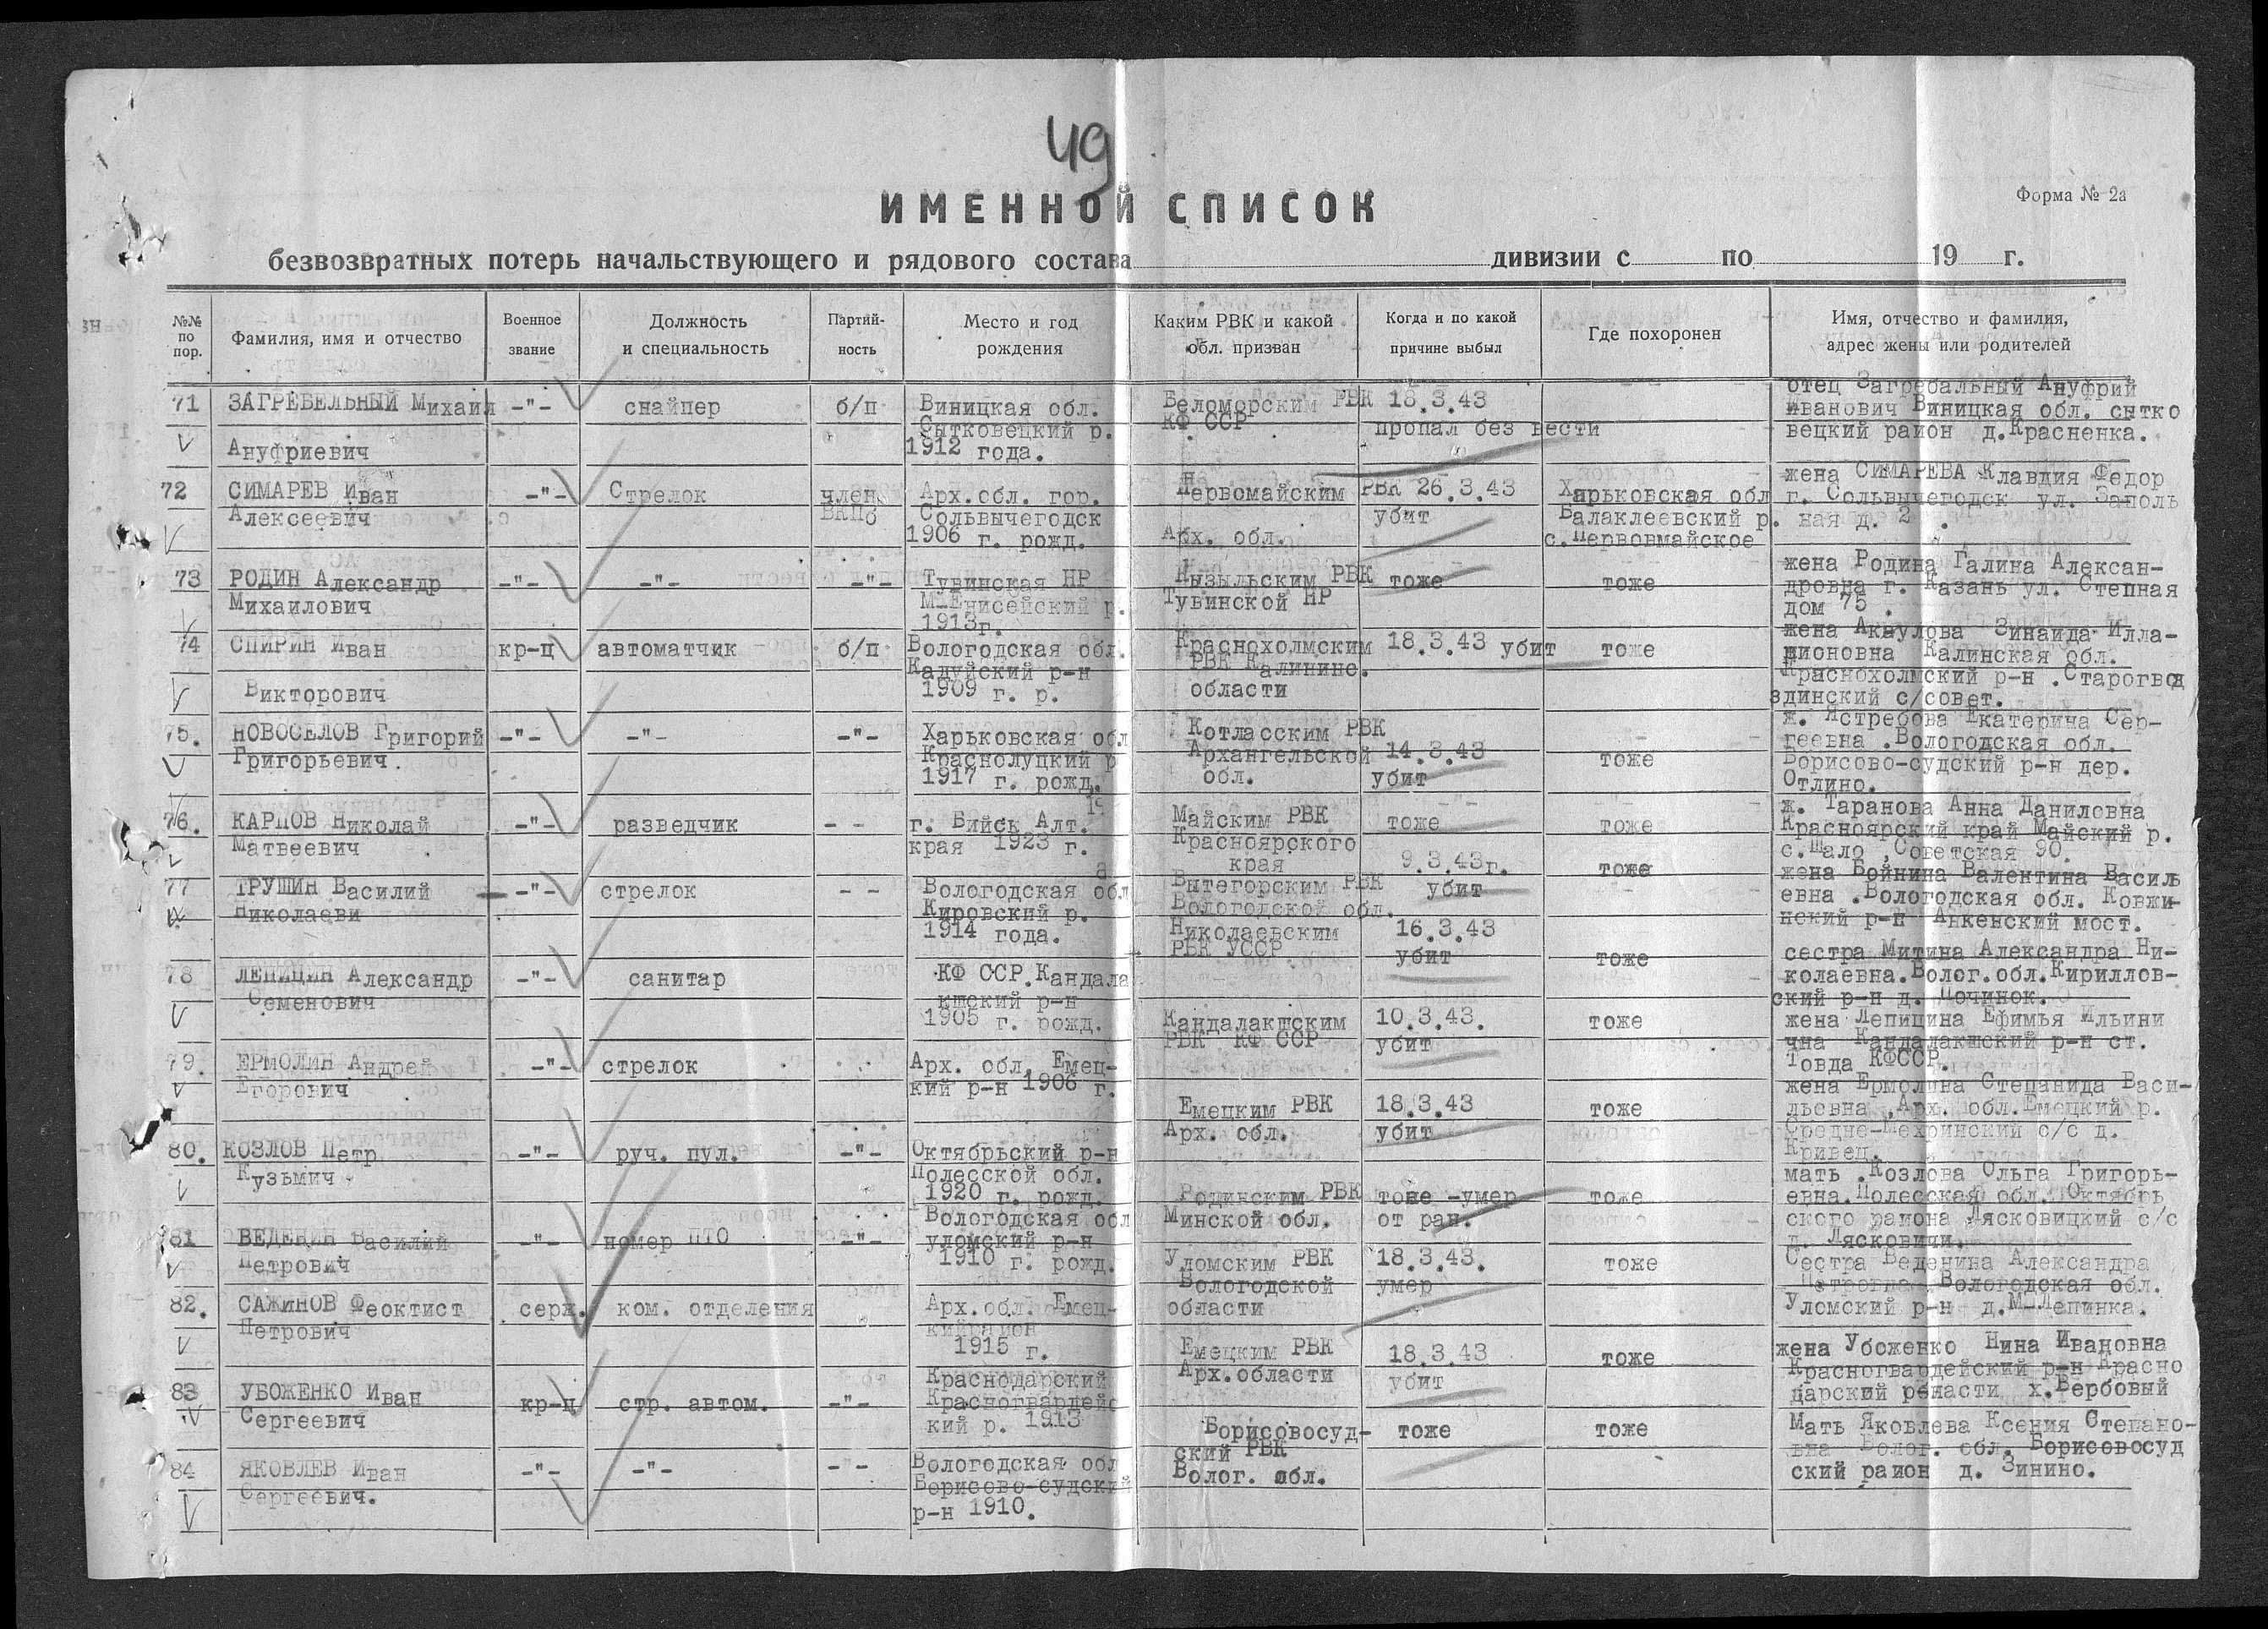 49
ИМЕННОЙ СПИСОК
Форма № 2а
безвозвратных потерь начальствующего и рядового состава дивизии с по 19 г.
№№ по пор.
Фамилия, имя и отчество
Военное звание
Должность и специальность
Партий-ность
Место и год рождения
Каким РВК и какой обл. призван
Когда и по какой причине выбыл
Где похоронен
Имя, отчество и фамилия, адрес жены или родителей
71 ЗАГРЕБЕЛЬНЫЙ Михаил -"- снайпер б/п Виницкая обл. Беломорским РВК 18.3.43 отец Загребальный Ануфрий
Ануфриевич Сытковецкий р. КФ ССР пропал без вести Иванович Виницкая обл. сытко
1912 года. вецкий район д.Красненка.
72 СИМАРЕВ Иван -"- Стрелок член Арх.обл. гор. Первомайским РВК 26.3.43 Харьковская обл жена СИМАРЕВА Клавдия Федор
Алексеевич ВКПб Сольвычегодск убит Балаклеевский р. г. Сольвычегодск ул. Заполь
1906 г. рожд. Арх. обл. с.Первовмайское ная д. 2 .
73 РОДИН Александр -"- -"- -"- Тувинская НР Кызыльским РВК тоже тоже жена Родина Галина Алексан-
Михаилович М-Енисейский р. Тувинской НР дровна г. Казань ул. Степная
1913г. дом 75 .
74 СПИРИН Иван кр-ц автоматчик б/п Вологодская обл. Краснохолмским 18.3.43 убит тоже жена Акулова Зинаида Илла-
Викторович Кадуйский р-н РВК Калинине. рионовна Калинская обл.
1909 г. р. области Краснохолмский р-н .Старогвоз
здинский с/совет.
75. НОВОСЕЛОВ Григорий -"- -"- -"- Харьковская обл Котласским РВК ж. Ястребова Екатерина Сер-
Григорьевич. Краснолуцкий р Архангельской 14.3.43 тоже геевна .Вологодская обл.
1917 г. рожд. обл. убит Борисово-судский р-н дер.
Отлино.
76. КАРПОВ Николай -"- разведчик - - г. Бийск Алт. Майским РВК тоже тоже ж. Таранова Анна Даниловна
Матвеевич края 1923 г. Красноярского Красноярский край Майский р.
края 9.3.43г. тоже с.Шало ,Советская 90.
77 ТРУШИН Василий -"- стрелок - - Вологодская обл Вытегорским РВК убит жена Бойнина Валентина Василь
Николаеви Кировский р. Вологодской обл. евна .Вологодская обл. Ковжи-
1914 года. Николаевским 16.3.43 нский р-н Анкенский мост.
РВК УССР убит тоже сестра Митина Александра Ни-
78 ЛЕПИЦИН Александр -"- санитар КФ ССР.Кандала колаевна.Волог.обл.Кириллов-
Семенович кшский р-н ский р-н д. Починок.
1905 г. рожд. Кандалакшским 10.3.43. тоже жена Лепицина Ефимья Ильини
РВК КФ ССР убит чна Кандалакшский р-н ст.
79. ЕРМОЛИН Андрей -"- стрелок Арх. обл. Емец- Товда КФССР.
Егорович кий р-н 1906 г. жена Ермолина Степанида Васи-
Емецким РВК 18.3.43 тоже льевна .Арх. обл.Емецкий р.
Арх. обл. убит Средне-Мехринский с/с д.
80. КОЗЛОВ Петр -"- руч. пул. -"- Октябрьский р-н Кривец.
Кузьмич Полесской обл. мать .Козлова Ольга Григорь-
1920 г. рожд. Родинским РВК тоже -умер тоже евна.Полесская обл. Октябрь
Вологодская обл Минской обл. от ран. ского района Лясковицкий с/с
81 ВЕДЕНИН Василий -"- номер ПТО -"- уломский р-н д. Лясковичи.
Петрович 1910 г. рожд. Уломским РВК 18.3.43. тоже Сестра Веденина Александра
Вологодской умер Петровна Вологодская обл.
82. САЖИНОВ Феоктист серж. ком. отделения Арх.обл. Емец- области Уломский р-н д.М-Лепинка.
Петрович кийрайон
1915 г. Емецким РВК 18.3.43 тоже жена Убоженко Нина Ивановна
Краснодарский Арх.области убит Красногвардейский р-н Красно
83 УБОЖЕНКО Иван кр-ц стр. автом. -"- Красногвардейс дарский области х.Вербовый
Сергеевич кий р. 1913 Борисовосуд- тоже тоже Мать Яковлева Ксения Степано-
ский РВК вна Волог. обл. Борисовосуд
84 ЯКОВЛЕВ Иван -"- -"- -"- Вологодская обл Волог. обл. ский раион д. Зинино.
Сергеевич. Борисово-судский
р-н 1910.